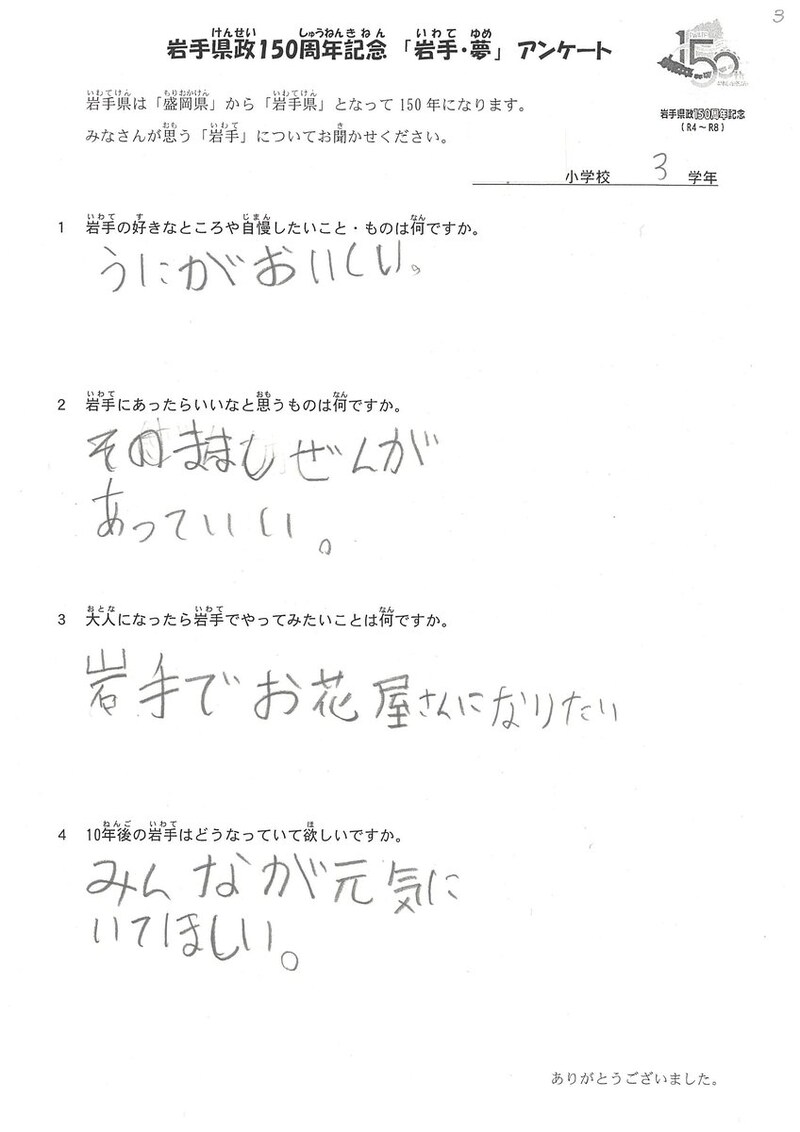 3
岩手県政150周年記念「岩手・夢」アンケート
150
岩手県政150周年記念
(R4~R8)
岩手県は「盛岡県」から「岩手県」となって150年になります。
みなさんが思う「岩手」についてお聞かせください。
小学校 3 学年
1 岩手の好きなところや自慢したいこと・ものは何ですか。
うにがおいしい。
2 岩手にあったらいいなと思うものは何ですか。
そのまましぜんが
あっていい。
3 大人になったら岩手でやってみたいことは何ですか。
岩手でお花屋さんになりたい
4 10年後の岩手はどうなっていて欲しいですか。
みんなが元気に
いてほしい。
ありがとうございました。